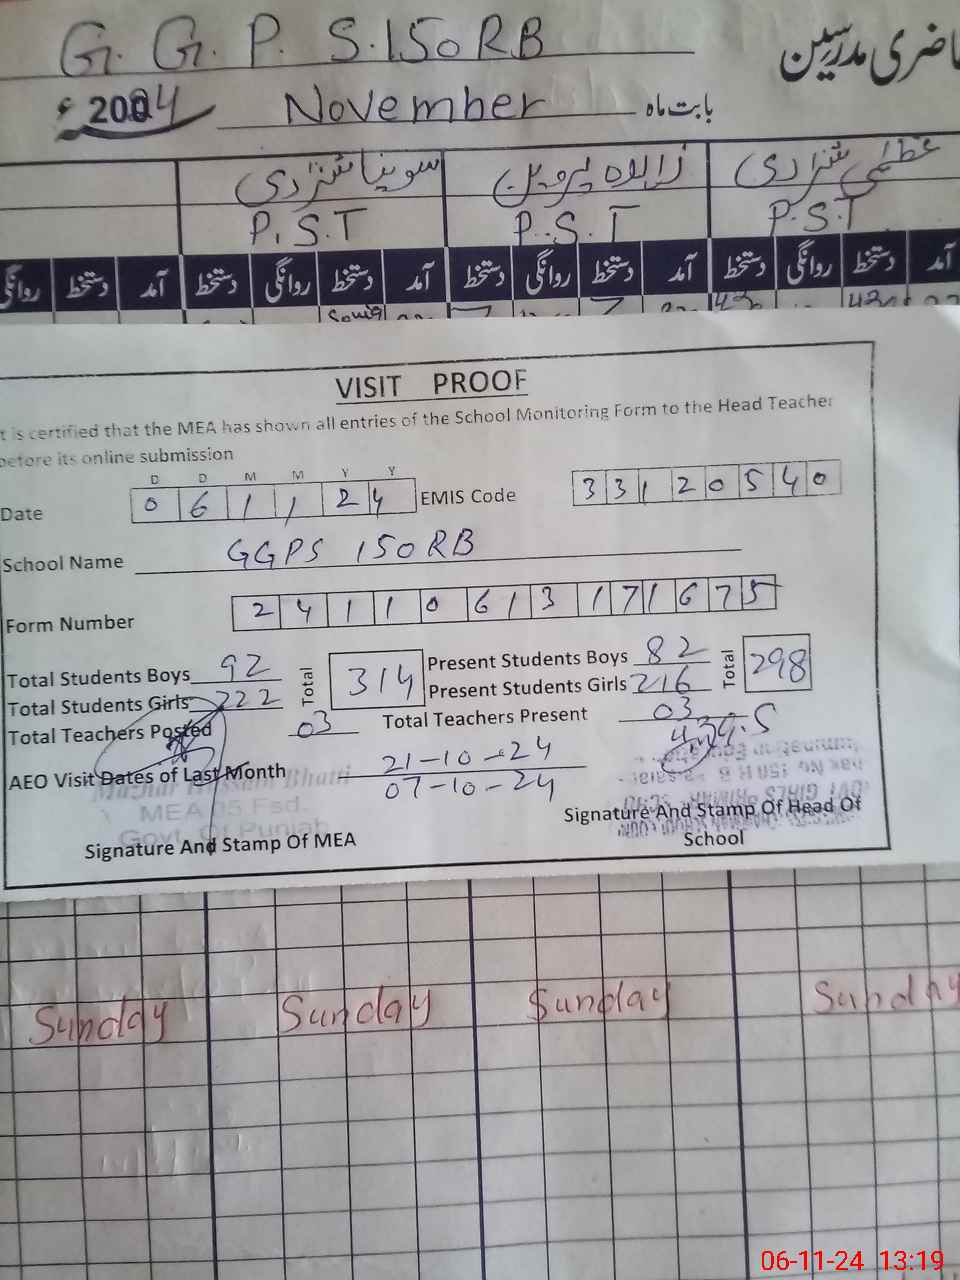 G. G. P. S. 150 RB
حاضری مدرسین
2024ء November بابت ماہ
سونیا شہزادی زاہدہ پروین عظمیٰ شہزادی
P.S.T P.S.T P.S.T
روانگی دستخط آمد دستخط روانگی دستخط آمد دستخط روانگی دستخط آمد دستخط روانگی دستخط آمد
VISIT PROOF
t is certified that the MEA has shown all entries of the School Monitoring Form to the Head Teacher
before its online submission
D D M M Y Y
Date 0 6 1 1 2 4 EMIS Code 3 3 1 2 0 5 4 0
School Name GGPS 150 RB
Form Number 2 4 1 1 0 6 1 3 1 7 1 6 7 5
Total Students Boys 92 Total 314 Present Students Boys 82 Total 298
Total Students Girls 222 Present Students Girls 216
Total Teachers Posted 03 Total Teachers Present 03
AEO Visit Dates of Last Month 21-10-24
07-10-24
Mazhar Hussain Bhatti
MEA 05 Fsd.
Govt. Of Punjab
Signature And Stamp Of MEA
Signature And Stamp Of Head Of
School
Sunday Sunday Sunday Sunday
06-11-24 13:19